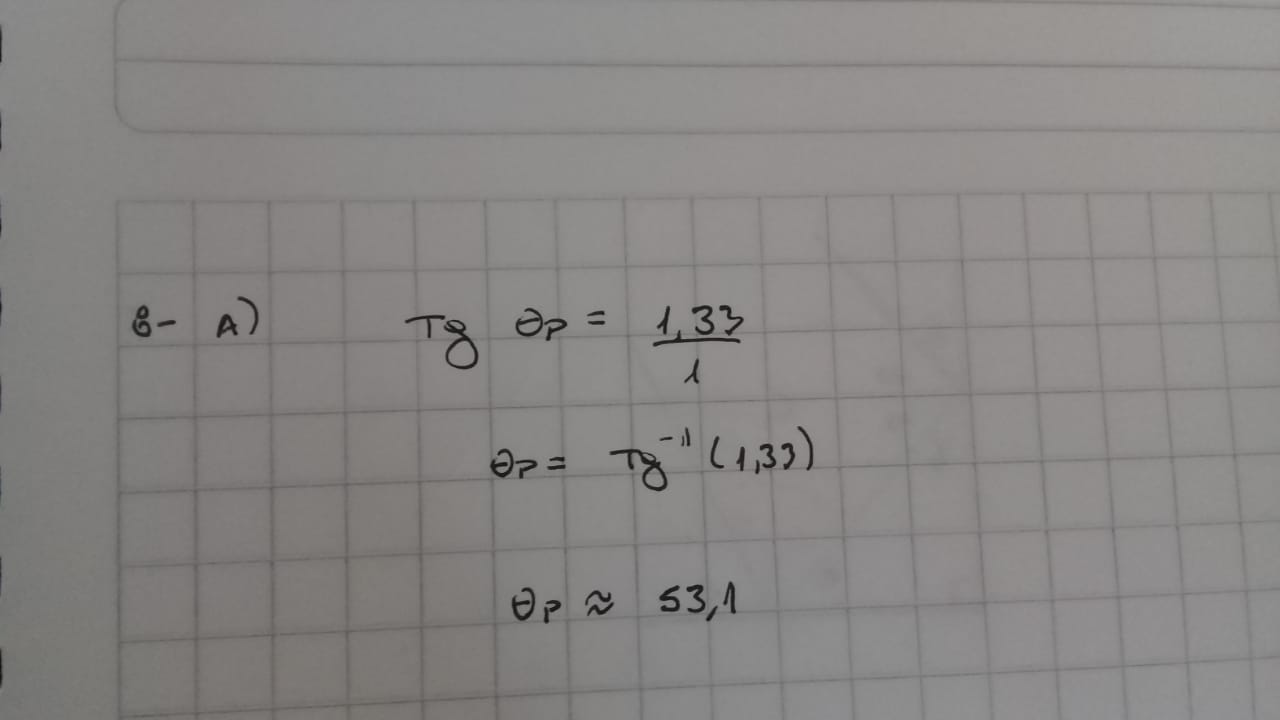 6- A) Tg θp = 1,33/1
θp = Tg⁻¹ (1,33)
θp ≈ 53,1